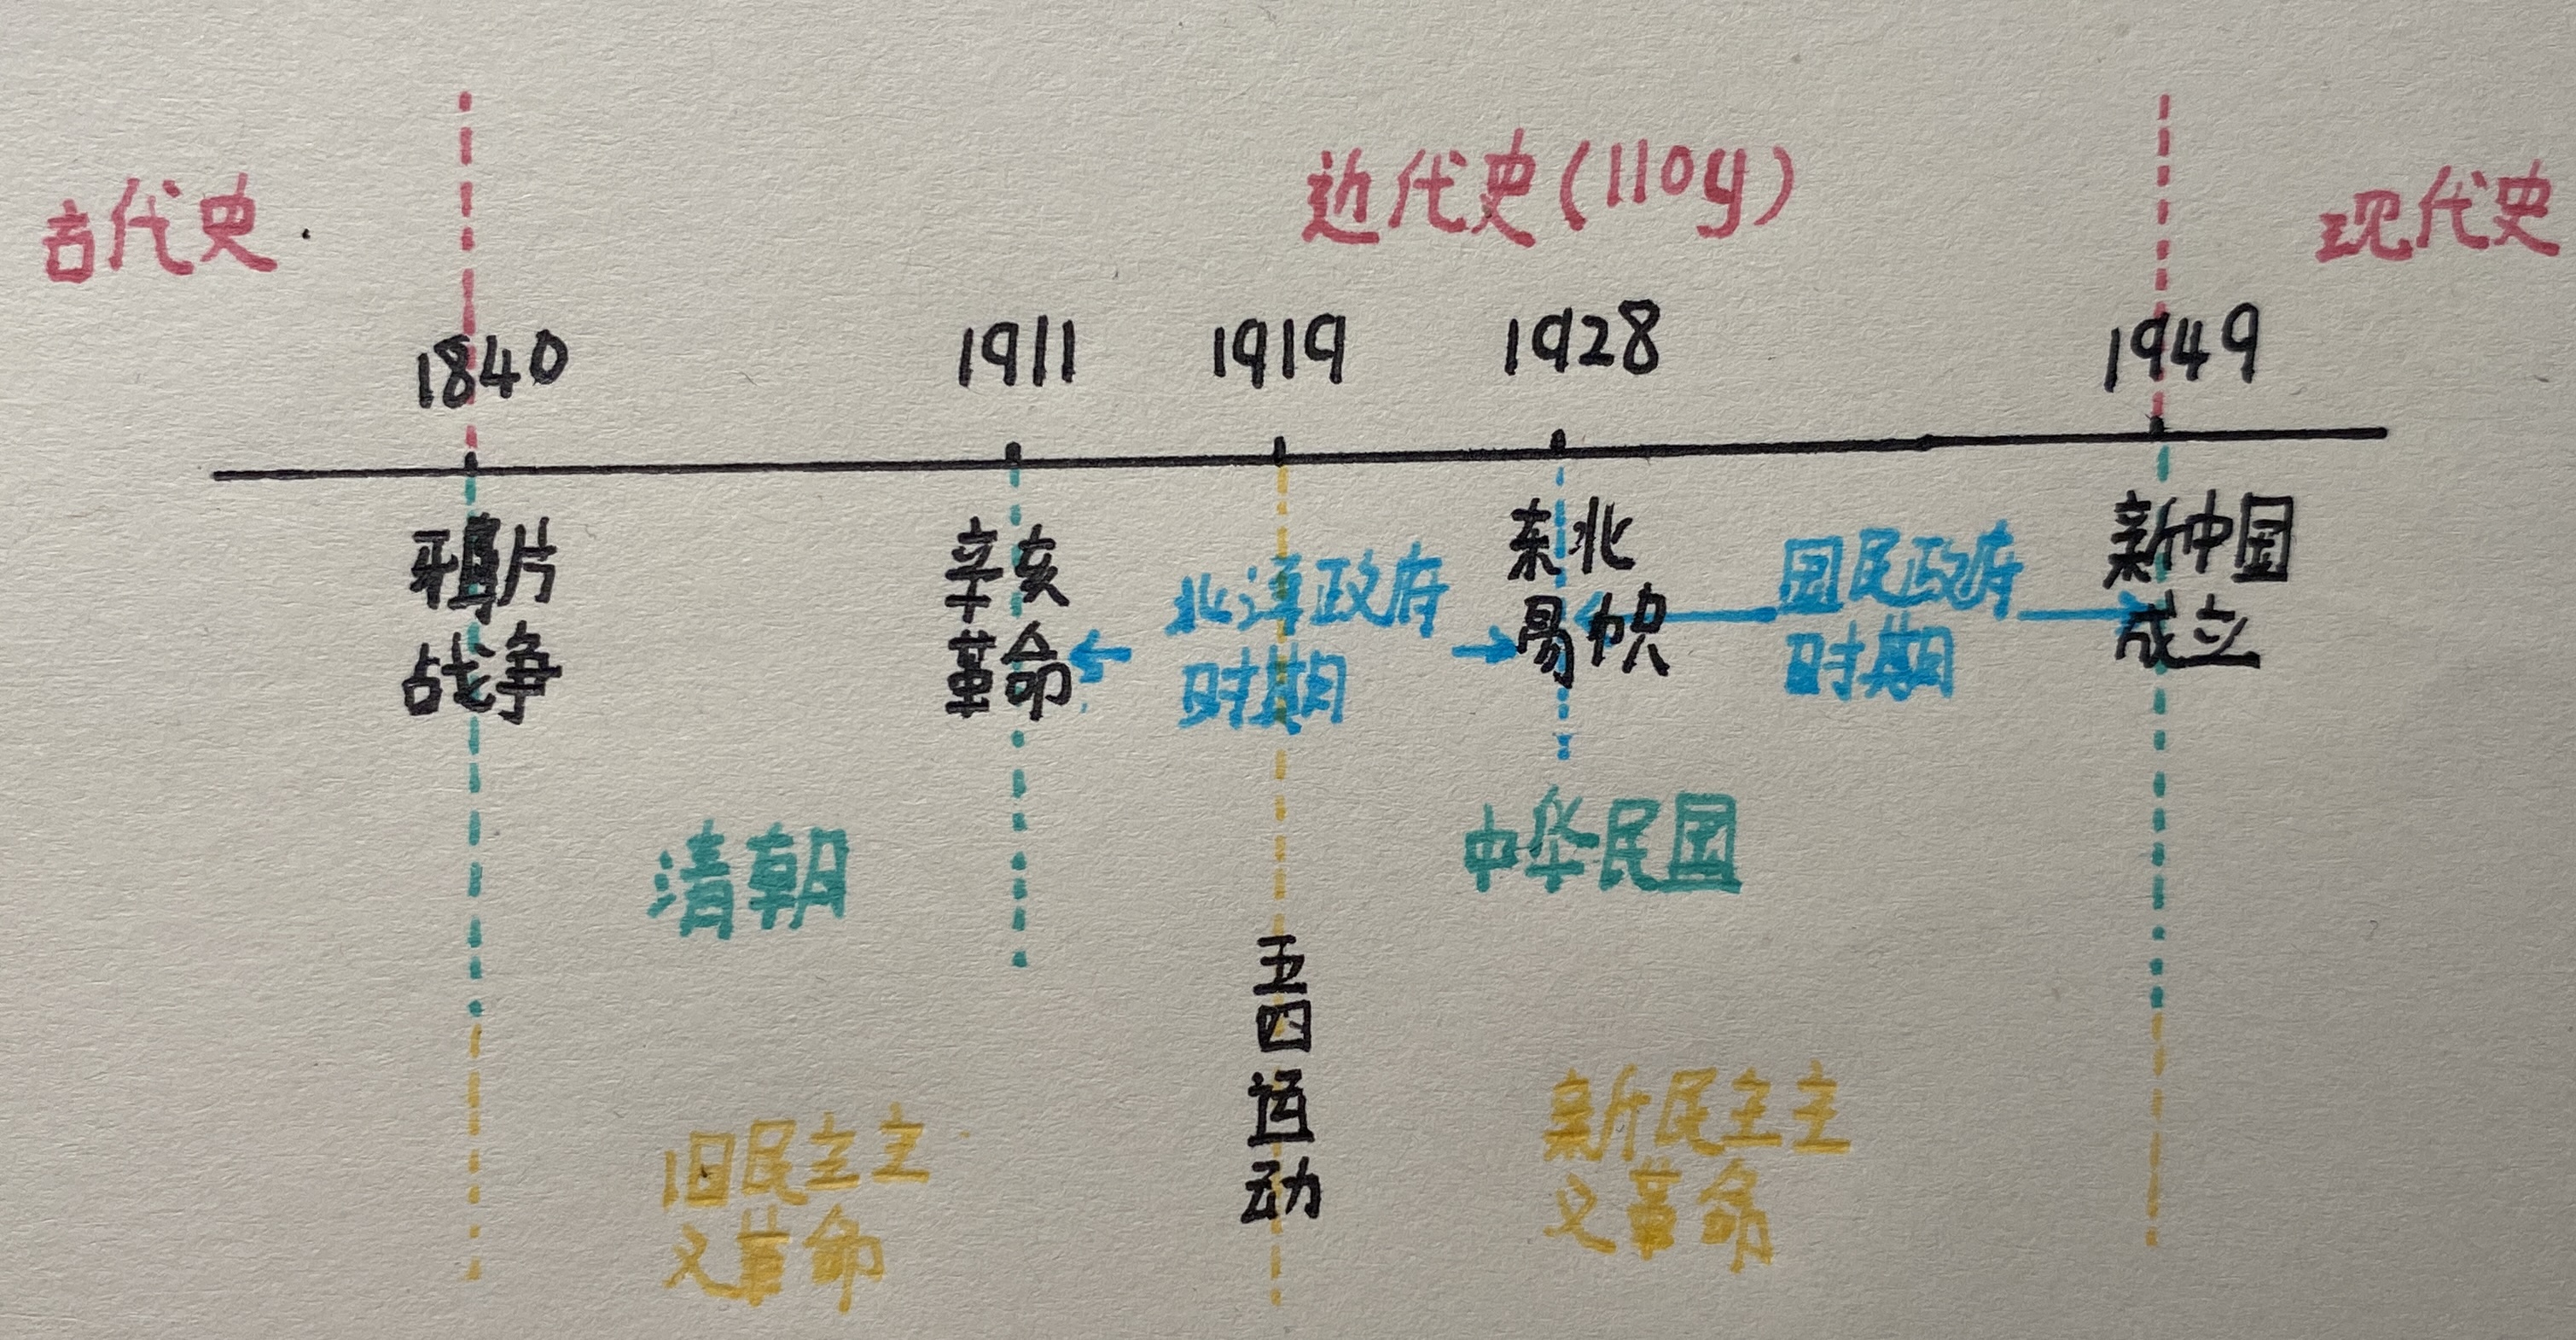 古代史
近代史(110y)
现代史
1840
1911
1919
1928
1949
鸦片
战争
辛亥
革命
北洋政府
时期
东北
易帜
国民政府
时期
新中国
成立
清朝
中华民国
五
四
运
动
旧民主主
义革命
新民主主
义革命